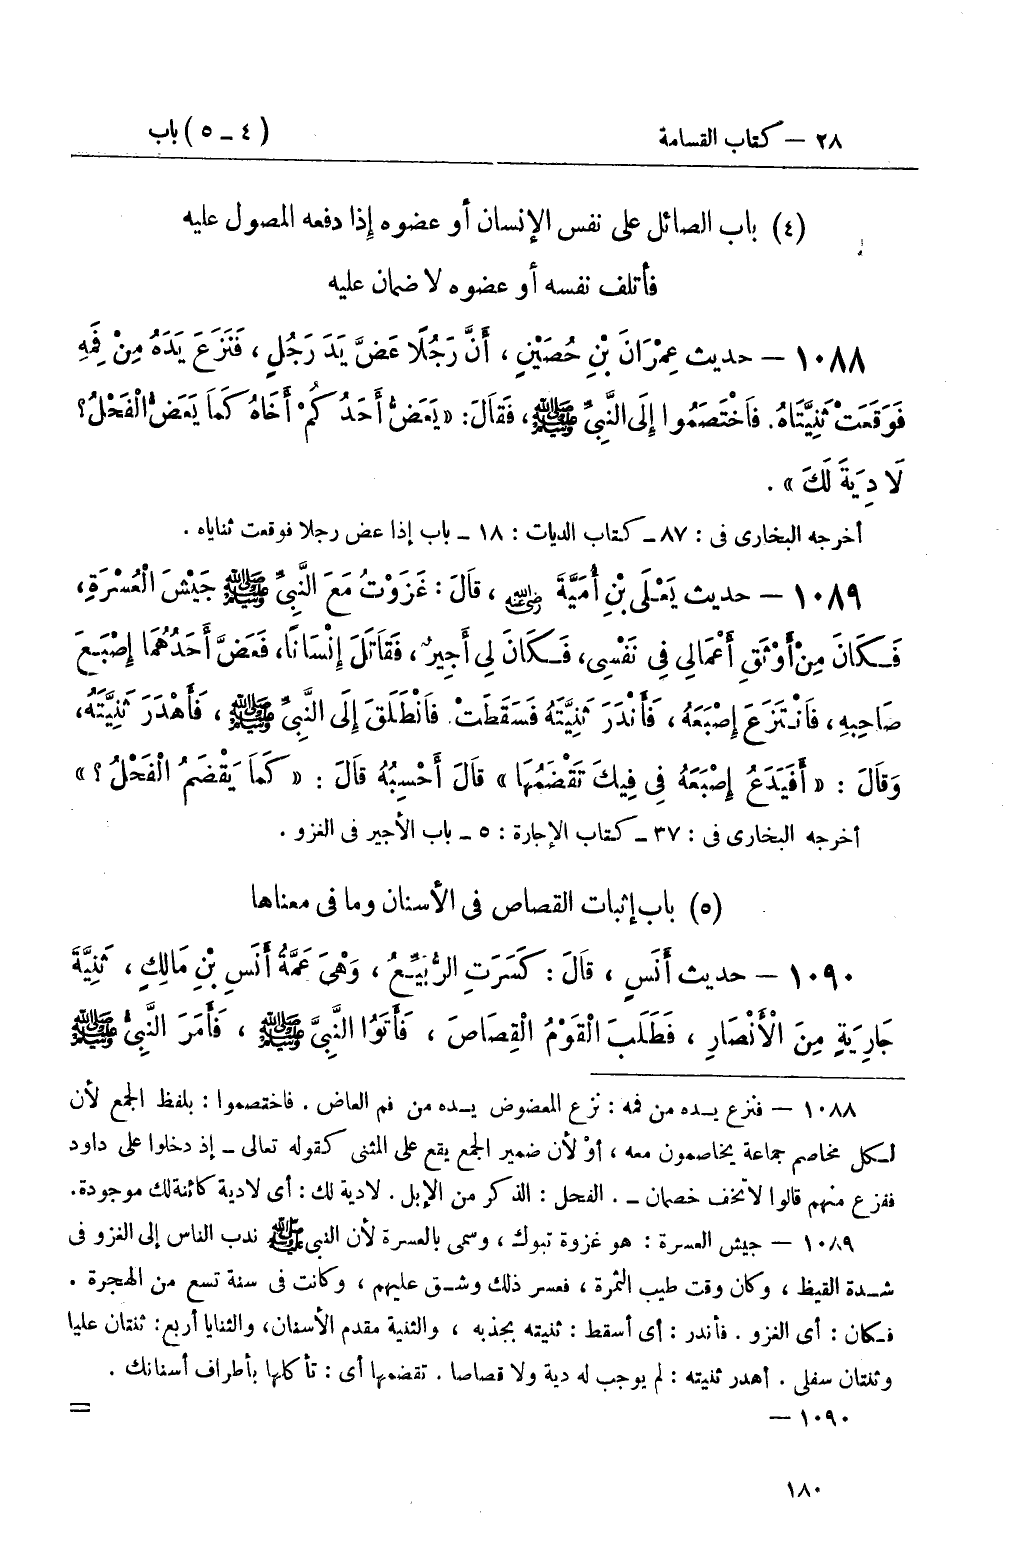 ٢٨ — كتاب القسامة
(٤ ـ ٥) باب
(٤) باب الصائل على نفس الإنسان أو عضوه إذا دفعه المصول عليه
فأتلف نفسه أو عضوه لا ضمان عليه
١٠٨٨ — حديث عِمْرَانَ بْنِ حُصَيْنٍ ، أَنَّ رَجُلًا عَضَّ يَدَ رَجُلٍ ، فَنَزَعَ يَدَهُ مِنْ فَمِهِ
فَوَقَعَتْ ثَنِيَّتَاهُ. فَاخْتَصَمُوا إِلَى النَّبِيِّ ﷺ، فَقَالَ: « يَعَضُّ أَحَدُكُمْ أَخَاهُ كَمَا يَعَضُّ الْفَحْلُ؟
لَا دِيَةَ لَكَ » .
أخرجه البخارى فى : ٨٧ ـ كتاب الديات : ١٨ ـ باب إذا عض رجلا فوقعت ثناياه .
١٠٨٩ — حديث يَعْلَى بْنِ أُمَيَّةَ رضي الله عنه ، قَالَ : غَزَوْتُ مَعَ النَّبِيِّ ﷺ جَيْشَ الْعُسْرَةِ ،
فَكَانَ مِنْ أَوْثَقِ أَعْمَالِي فِي نَفْسِي، فَكَانَ لِي أَجِيرٌ ، فَقَاتَلَ إِنْسَانًا، فَعَضَّ أَحَدُهُمَا إِصْبَعَ
صَاحِبِهِ ، فَانْتَزَعَ إِصْبَعَهُ ، فَأَنْدَرَ ثَنِيَّتَهُ فَسَقَطَتْ. فَانْطَلَقَ إِلَى النَّبِيِّ ﷺ ، فَأَهْدَرَ ثَنِيَّتَهُ،
وَقَالَ : « أَفَيَدَعُ إِصْبَعَهُ فِي فِيكَ تَقْضَمُهَا » قَالَ أَحْسِبُهُ قَالَ : « كَمَا يَقْضَمُ الْفَحْلُ ؟ »
أخرجه البخارى فى : ٣٧ ـ كتاب الإجارة : ٥ ـ باب الأجير فى الغزو .
(٥) باب إثبات القصاص فى الأسنان وما فى معناها
١٠٩٠ — حديث أَنَسٍ ، قَالَ : كَسَرَتِ الرُّبَيِّعُ ، وَهْيَ عَمَّةُ أَنَسِ بْنِ مَالِكٍ ، ثَنِيَّةَ
جَارِيَةٍ مِنَ الْأَنْصَارِ ، فَطَلَبَ الْقَوْمُ الْقِصَاصَ ، فَأَتَوُا النَّبِيَّ ﷺ ، فَأَمَرَ النَّبِيُّ ﷺ
١٠٨٨ — فنزع يده من فمه : نزع المعضوض يده من فم العاض . فاختصموا : بلفظ الجمع لأن
لكل مخاصم جماعة يخاصمون معه ، أوْ لأن ضمير الجمع يقع على المثنى كقوله تعالى ـ إذ دخلوا على داود
ففزع منهم قالوا لا تخف خصمان ـ . الفحل : الذكر من الإبل . لادية لك : أى لادية كائنة لك موجودة.
١٠٨٩ — جيش العسرة : هو غزوة تبوك ، وسمى بالعسرة لأن النبي ﷺ ندب الناس إلى الغزو فى
شدة القيظ ، وكان وقت طيب الثمرة ، فعسر ذلك وشق عليهم ، وكانت فى سنة تسع من الهجرة .
فكان : أى الغزو . فأندر : أى أسقط : ثنيته بجذبه ، والثنية مقدم الأسنان، والثنايا أربع: ثنتان عليا
وثنتان سفلى . أهدر ثنيته : لم يوجب له دية ولا قصاصا . تقضمها أى : تأكلها بأطراف أسنانك .
١٠٩٠ —
=
١٨٠